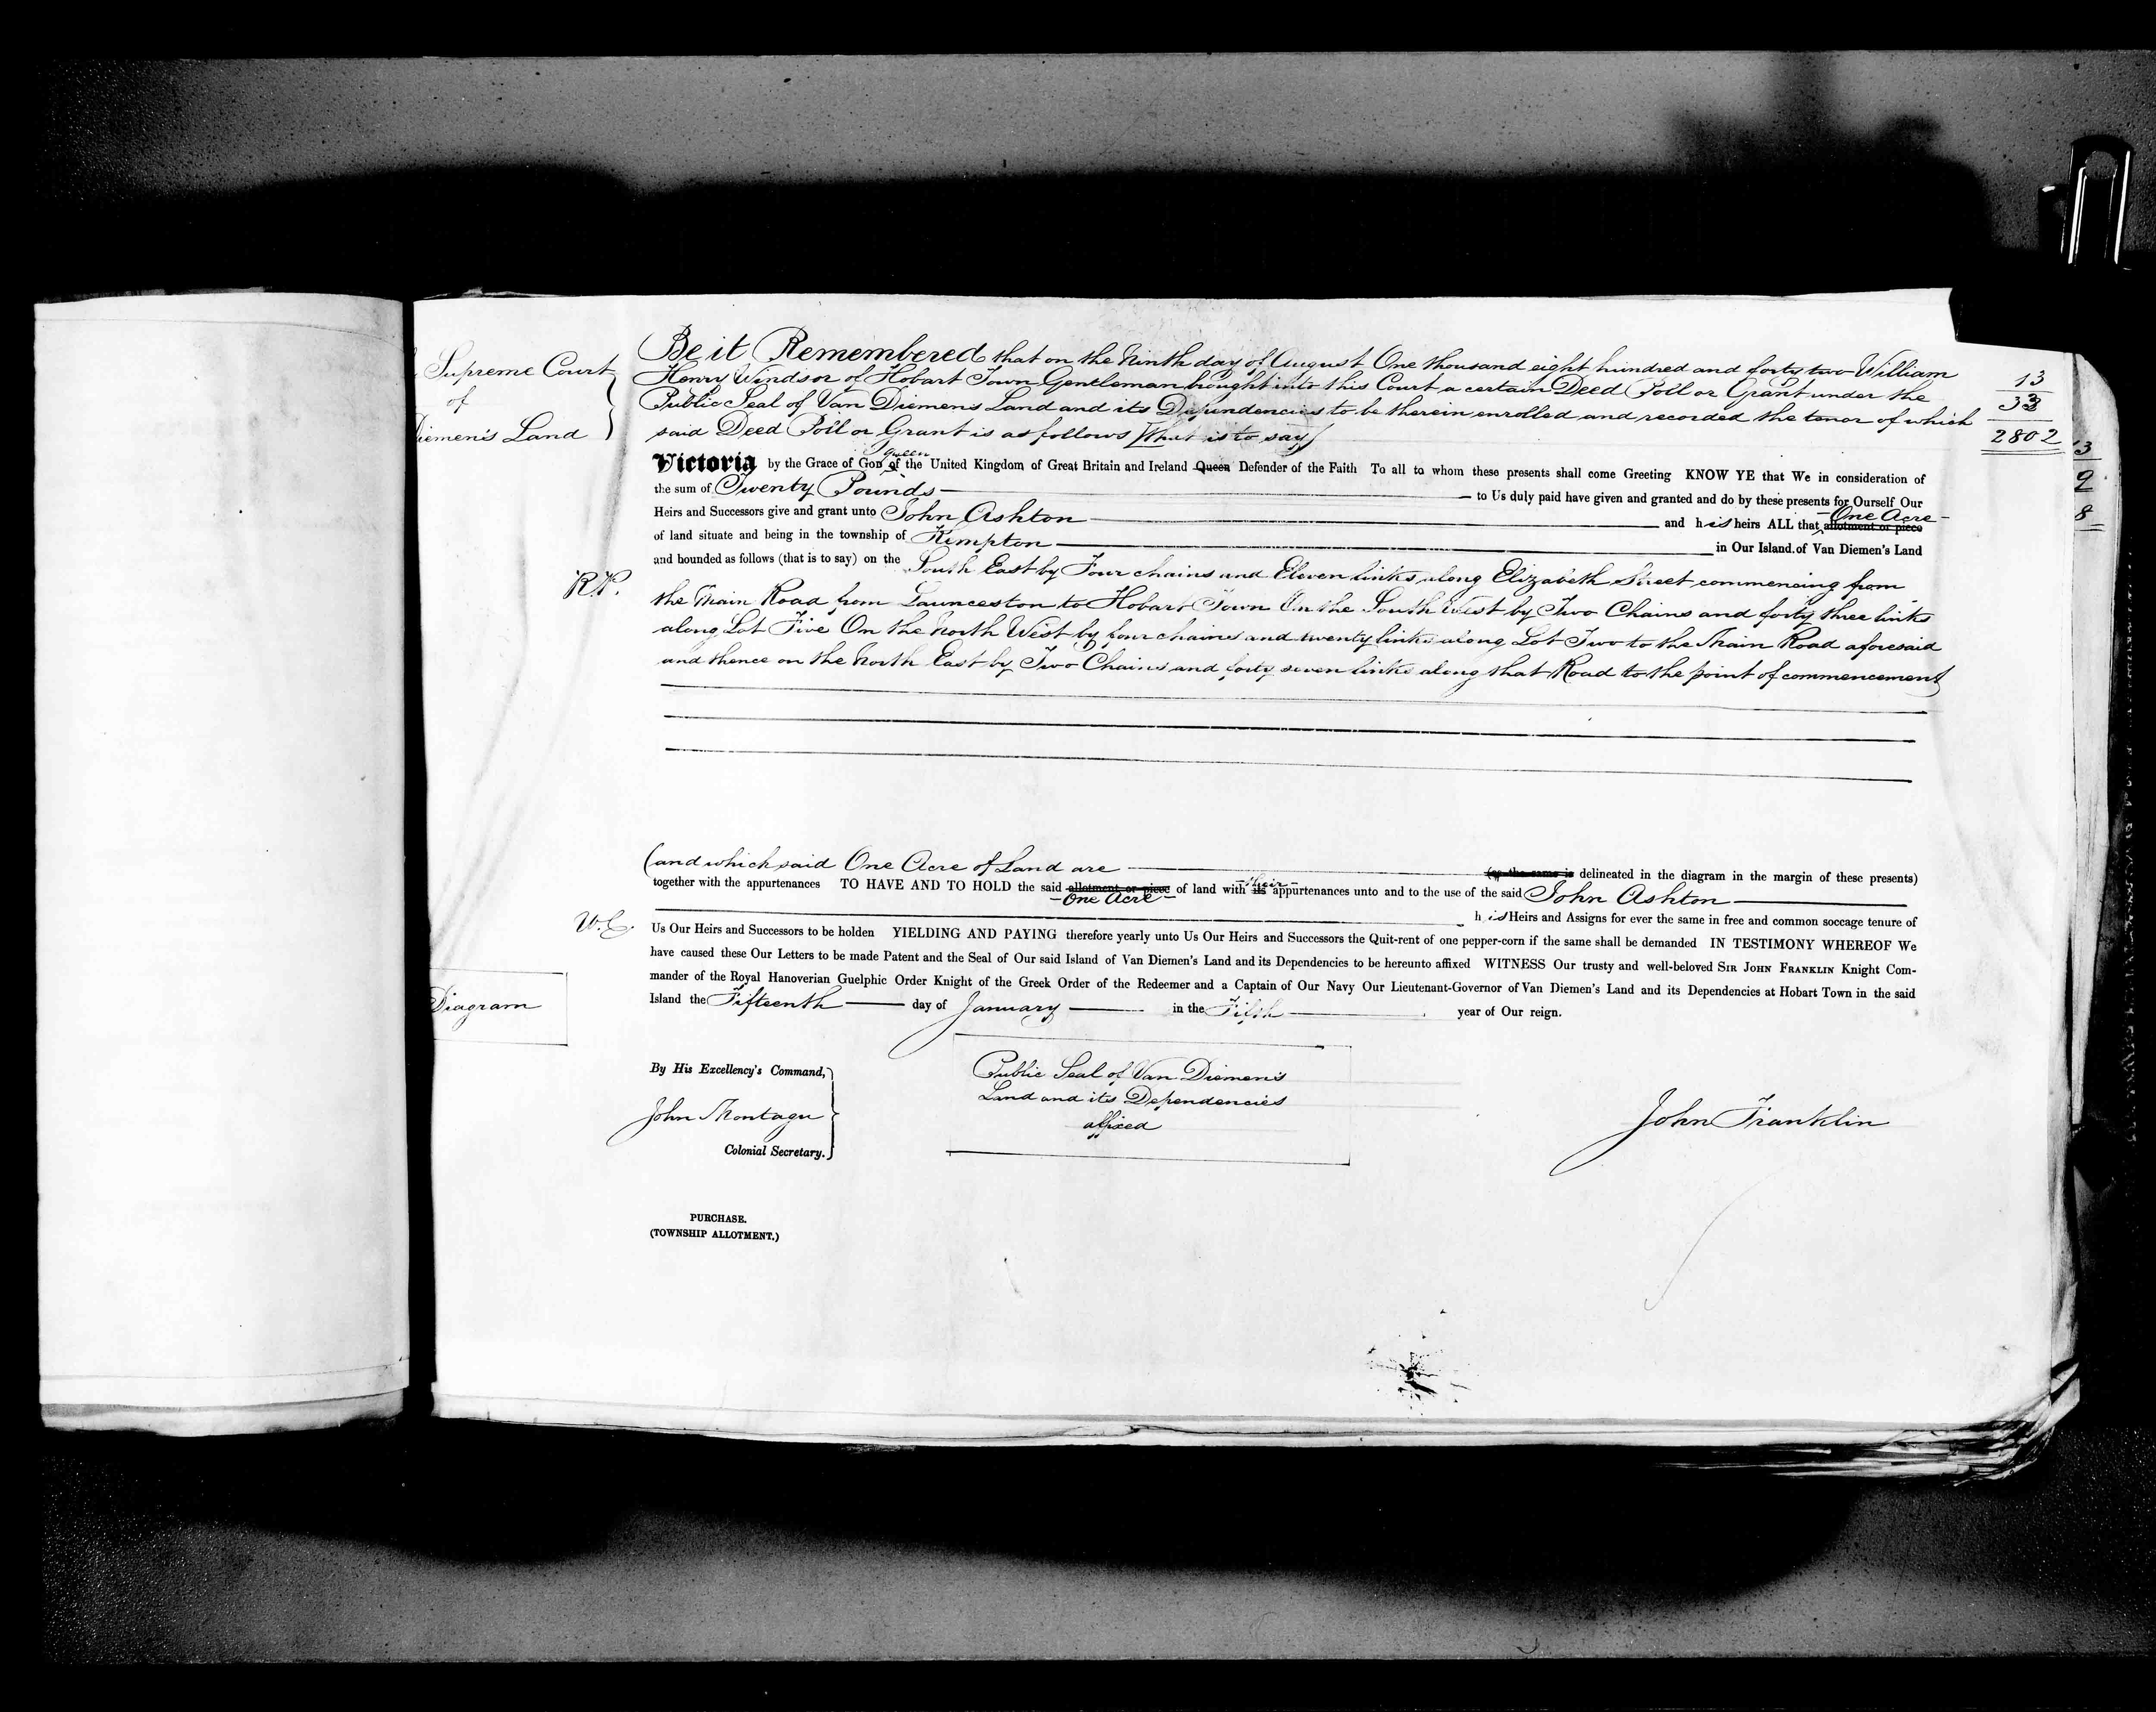 Supreme Court
of
Diemen's Land
Be it Remembered that on the Ninth day of August One thousand eight hundred and forty two William
Henry Windsor of Hobart Town Gentleman bought into this Court a certain Deed Poll or Grant under the
Public Seal of Van Diemen's Land and its Dependencies to be therein enrolled and recorded the tenor of which
said Deed Poll or Grant is as follows (that is to say)
13
33
2802
3
2
8
Queen
Victoria by the Grace of God of the United Kingdom of Great Britain and Ireland Queen Defender of the Faith To all to whom these presents shall come Greeting KNOW YE that We in consideration of
the sum of Twenty Pounds to Us duly paid have given and granted and do by these presents for Ourself Our
Heirs and Successors give and grant unto John Ashton and his heirs ALL that allotment or piece
One Acre
of land situate and being in the township of Kempton in Our Island of Van Diemen's Land
and bounded as follows (that is to say) on the South East by Four chains and Eleven links along Elizabeth Street commencing from
R.P.
the Main Road from Launceston to Hobart Town On the South West by Two Chains and forty three links
along Lot Five On the North West by four chains and twenty links along Lot Two to the Main Road aforesaid
and thence on the North East by Two Chains and forty seven links along that Road to the point of commencement
(and which said One Acre of Land are (or the same is delineated in the diagram in the margin of these presents)
together with the appurtenances TO HAVE AND TO HOLD the said allotment or piece of land with its appurtenances unto and to the use of the said John Ashton
One Acre
their
his Heirs and Assigns for ever the same in free and common soccage tenure of
W.C.
Us Our Heirs and Successors to be holden YIELDING AND PAYING therefore yearly unto Us Our Heirs and Successors the Quit-rent of one pepper-corn if the same shall be demanded IN TESTIMONY WHEREOF We
have caused these Our Letters to be made Patent and the Seal of Our said Island of Van Diemen's Land and its Dependencies to be hereunto affixed WITNESS Our trusty and well-beloved SIR JOHN FRANKLIN Knight Com-
mander of the Royal Hanoverian Guelphic Order Knight of the Greek Order of the Redeemer and a Captain of Our Navy Our Lieutenant-Governor of Van Diemen's Land and its Dependencies at Hobart Town in the said
Island the Fifteenth day of January in the Fifth year of Our reign.
Diagram
By His Excellency's Command,
John Montagu
Colonial Secretary.
Public Seal of Van Diemen's
Land and its Dependencies
affixed
John Franklin
PURCHASE.
(TOWNSHIP ALLOTMENT.)